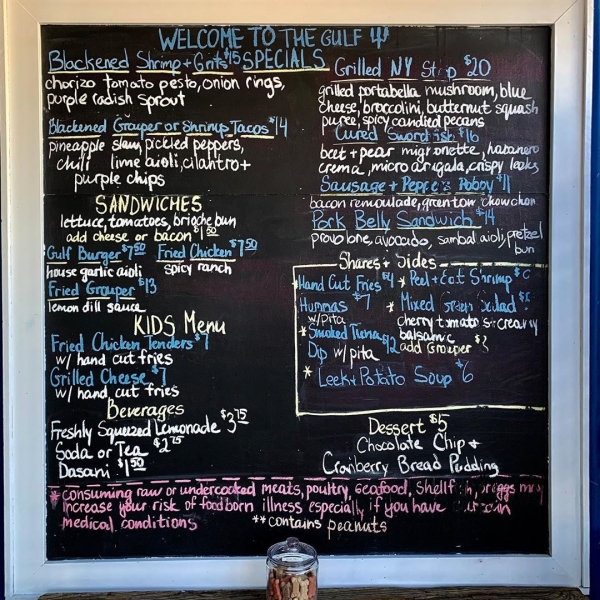 WELCOME TO THE GULF
Blackened Shrimp + Grits $15 SPECIALS
chorizo tomato pesto, onion rings,
purple radish sprout
Blackened Grouper or Shrimp Tacos $14
pineapple slaw, pickled peppers,
chili lime aioli, cilantro +
purple chips
Grilled NY Strip $20
grilled portabella mushroom, blue
cheese, broccolini, butternut squash
puree, spicy candied pecans
Cured Swordfish $16
beet + pear migronette, habanero
crema, micro arugala, crispy leeks
Sausage + Peppers Poboy $11
bacon remoulade, green tom chow chow
Pork Belly Sandwich $14
provolone, avocado, sambal aioli, pretzel
bun
SANDWICHES
lettuce, tomatoes, brioche bun
add cheese or bacon $1.50
Gulf Burger $7.50 Fried Chicken $7.50
house garlic aioli spicy ranch
Fried Grouper $13
lemon dill sauce
KIDS Menu
Fried Chicken Tenders $7
w/ hand cut fries
Grilled Cheese $7
w/ hand cut fries
Beverages
Freshly Squeezed Lemonade $3.75
Soda or Tea $2.75
Dasani $1.50
Shares + Sides
Hand Cut Fries $4
Hummas $7
w/ Pita
* Smoked Tuna $12
Dip w/ pita
* Peel + Eat Shrimp
* Mixed Green Salad
cherry tomato creamy
balsamic
add Grouper
* Leek + Potato Soup $6
Dessert $5
Chocolate Chip +
Cranberry Bread Pudding
* consuming raw or undercooked meats, poultry, seafood, Shellfish, or eggs may
increase your risk of foodborn illness especially if you have certain
medical conditions **contains peanuts